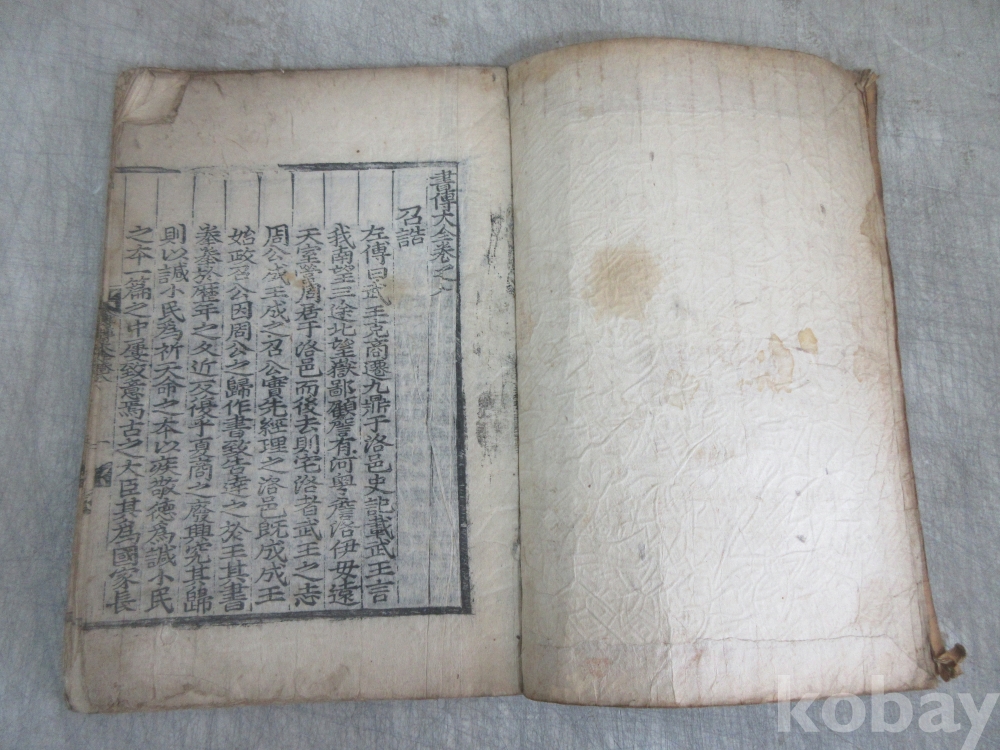 書傳大全卷之八
召誥
左傳曰武王克商遷九鼎于洛邑史記載武王言
我南望三途北望嶽鄙顧詹有河粤詹洛伊毋遠
天室營周居于洛邑而後去則宅洛者武王之志
周公成王成之召公實先經理之洛邑既成成王
始政召公因周公之歸作書致告達之於王其書
拳拳於歷年之久近反復乎夏商之廢興究其歸
則以諴小民為祈天命之本以疾敬德為諴小民
之本一篇之中屢致意焉古之大臣其爲國家長
kobay